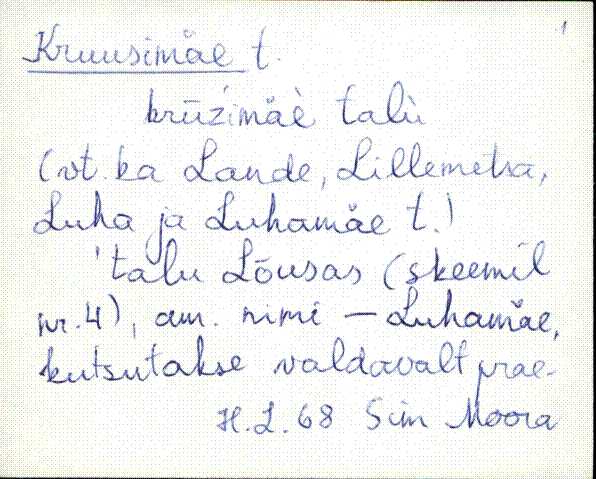 1
Kruusimäe t.
krūźimäè talù
(vt. ka Lande, Lillemetsa,
Luha ja Luhamäe t.)
'talu Lõusas (skeemil
nr. 4), am. nimi — Luhamäe,
kutsutakse valdavalt prae-
H.L. 68 Sim Moora